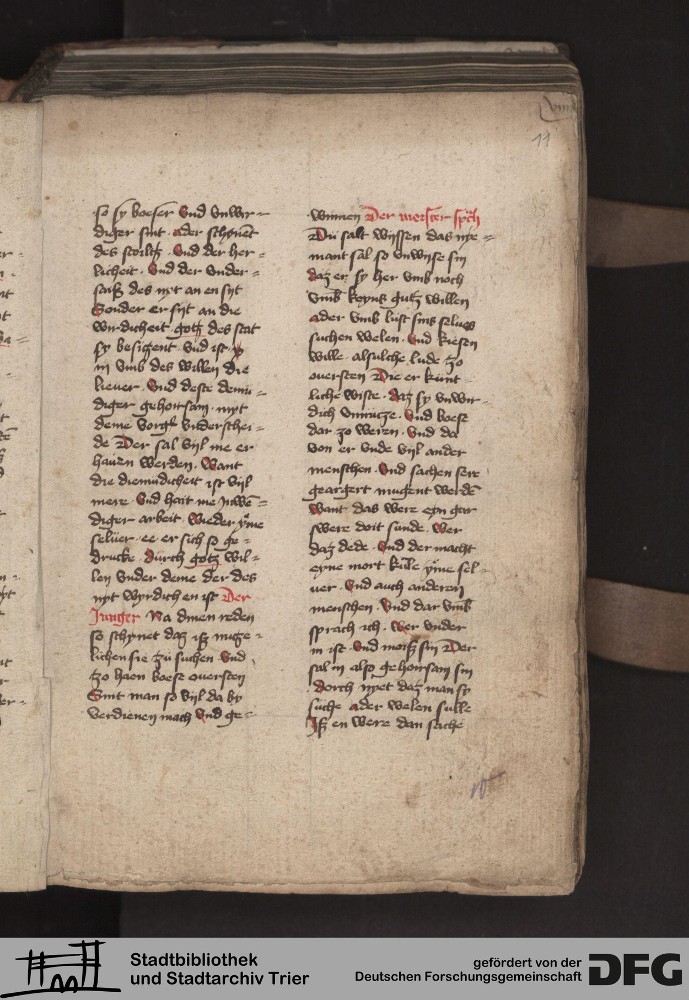 so sy boeser Vnd vnwir=
diger sint. ader schynet
des stoiltz. Vnd der her=
licheit. Vnd der vnder=
saiß des nyt an en syt
Sonder er syt an die
wirdicheit gotz des stat
sy besitzent. Vnd ist
in vmb des willen die
lieuer. Vnd deste demu=
diger gehoirsam. myt
deme vorg vnderschei=
de Der sal vyl me er
hauen werden. Want
die diemudicheit ist vyl
mere. Vnd hait me inwē=
diger arbeit. Wieder yme
seluer. ee er sich so ge=
drucke. Durch gotz wil=
len vnder deme der des
nyt wyrdich en ist Der
Junger Na dinen reden
so schynet daz iß muge=
lichen sie zu suchen. Vnd
zo haen boese ouersten
Sint man so vyl da by
verdienen mach Vnd ge=
winnen Der meister sp̄ch
Du salt wyssen das nye=
mant sal so vnwyse sin
daz er sy her vmb noch
vmb keyns gutz willen
ader vmb lust sins selues
suchen welen. Vnd kiesen
wille. alsulche lude zo
ouersten Die er künt=
liche wiste. daz sy vnwir=
dich vnnutze. Vnd boese
dar zo weren. Vnd da
von er vnde vyl ander
menschen. Vnd sachen sere
geargert mugent werdē
Want das were eyn gar
swere doit sunde. Wer
daz dede. Vnd der macht
eyne mort kule yme sel=
uer. Vnd auch anderen
menschen. Vnd dar vmb
sprach ich. Wer vnder
in ist. Vnd moiß sin Der
sal in also gehoirsam sin
Dorch nyet daz man sy
suche ader welen sulle
Iß en were dan sache
11
Stadtbibliothek
und Stadtarchiv Trier
gefördert von der
Deutschen Forschungsgemeinschaft
DFG